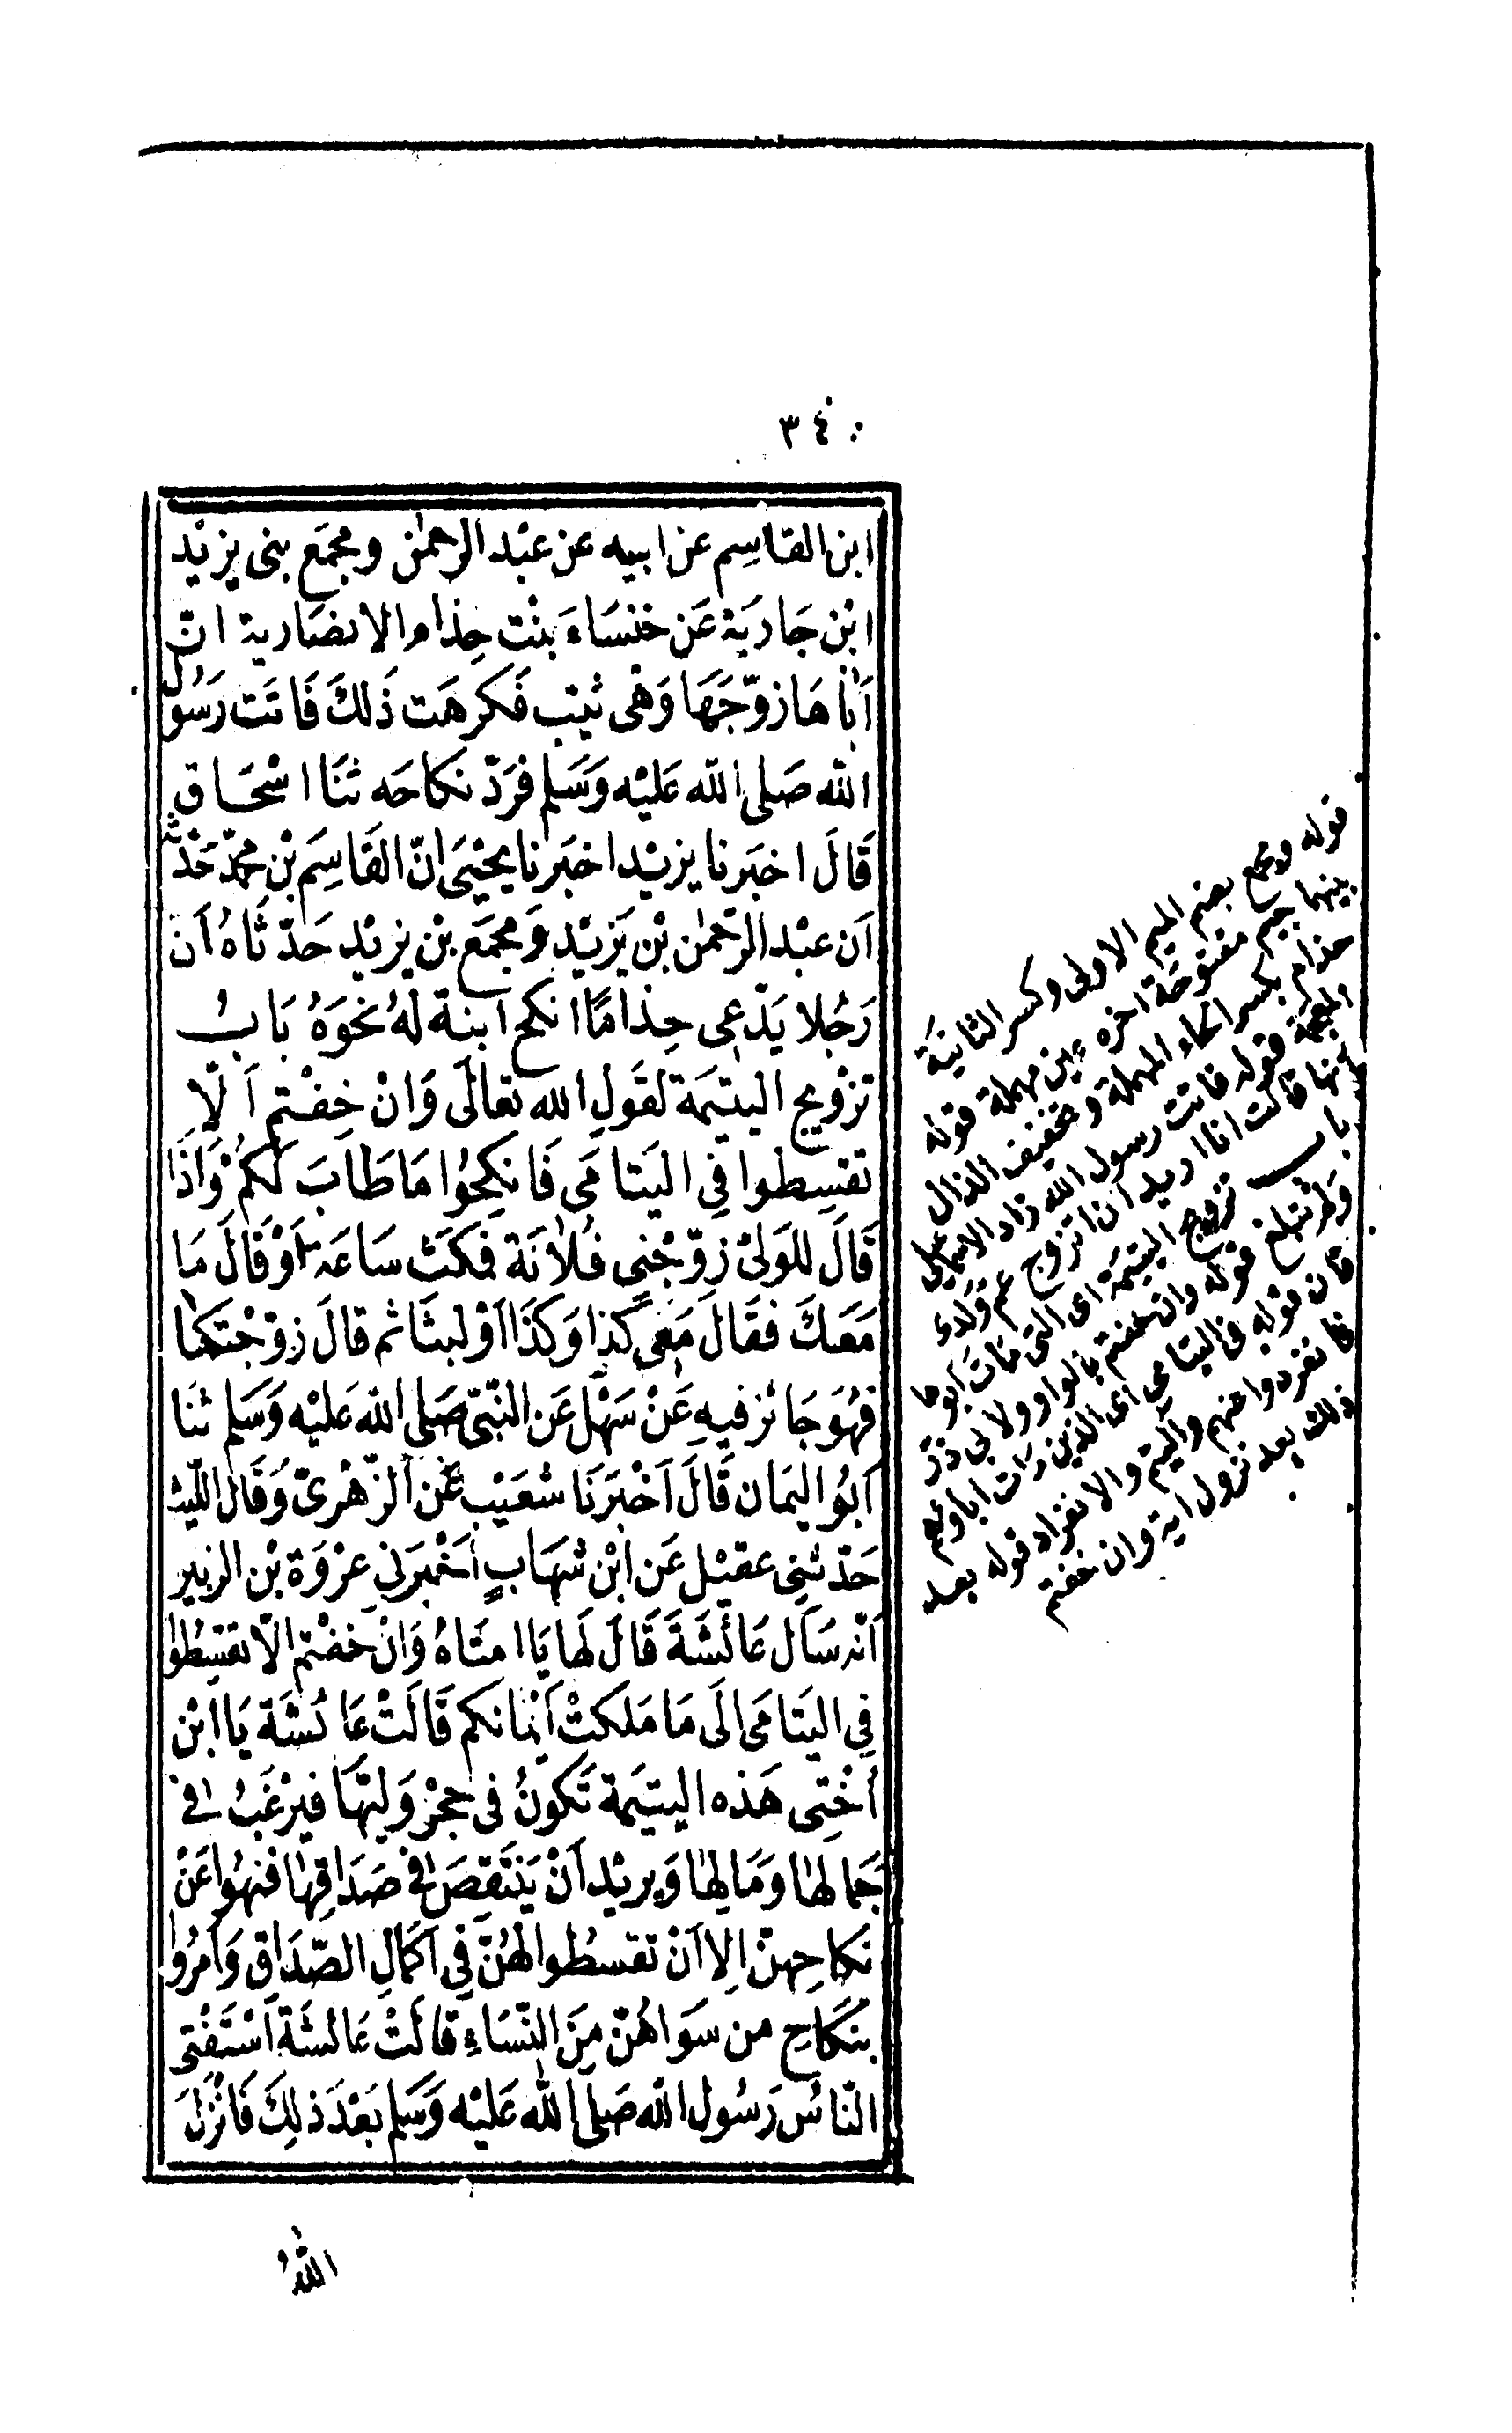 ٣٤٠
ابن القاسِم عن ابيه عن عبْد الرحمٰن ومجمَع بنى يزيْد
ابْن جَاريَة عَن خنسَاءَ بنْت خِذام الانصَارية انّ
اَباهَا زوّجَهَا وَهْى ثيّب فَكرهَت ذَلكَ فَاتَت رَسُول
الله صَلى الله عَليْه وَسَلم فرَدّ نكاحَه ثنَا اسْحَاق
قَالَ اخبَرنا يزيْد اخبَرنا يحْيَى انّ القَاسِمَ بْن محمّد حَدّثه
اَن عبْد الرّحمٰن بْن يَزيْد وَمجمَع بْن يزيْد حَدّثَاهُ اَن
رَجُلا يَدّعى خِذامًا انكح ابنة لهُ نحوَهُ بَابُ
تزْويج اليتيمَة لقَولِ الله تعَالَى وَانْ خِفْتم اَلّا
تقسِطوا فِى اليَتامَى فَانكِحُوا مَا طَابَ لَكمُ وَاِذَا
قَالَ للوَلىّ زوّجْنِى فُلانَة فمكَث سَاعَة اَوْ قَالَ مَا
مَعَكَ فقَالَ مَعِى كَذا وَكَذَا اَوْ لبثَا ثم قالَ زوّجْتكهَا
فهُوَ جَائز فيهِ عَنْ سَهْل عَن النّبىّ صَلى الله عَليْه وَسَلم ثنَا
اَبُو اليَمان قَالَ اَخْبَرَنَا شعَيْب عَن الزّهْرىّ وَقَال اللّيث
حَدّثنِى عقيْل عَن ابْن شهَابٍ اَخْبرَنِى عرْوَة بْن الزبير
اَنّه سَاَل عَائشَةَ قَالَ لَهَا يَا امتَاهُ وَانْ خفْتم الّا تقسِطُوا
فِى اليَتَامَى الَى مَا مَلكتْ اَيْمانكم قَالَتْ عَائشَة يَا ابْن
اُخْتِى هَذه اليَتيمَة تَكونُ فى حجْرْ وَليّهَا فيَرْغَبُ فى
جَمالهَا وَمَالِهَا وَيريْد اَنْ يَنتَقِصَ فى صَدَاقِهَا فنهُوا عَنْ
نكاحِهنّ الِا اَنْ تقسطُوا لهُنّ فِى اكمَالِ الصّدَاق وَاَمرُوا
بنكَاحِ من سوَاهُنّ مِنَ النّسَاءِ قالَتْ عَائشَة اَسْتَفْتى
النّاسُ رَسُول الله صَلى الله عَليْه وَسَلم بَعْدَ ذلِكَ فَانْزَلَ
اللهُ
قوله ومجمع بضم الميم الاولى وكسر الثانية
بينهما جيم مفتوحة اخره عين مهملة قوله
خذام بكسر الخاء المهملة وتخفيف الذال
المعجمة قوله فاتت رسول الله زاد الاسماعيلى
انها قالت انا اريد ان اتزوج عم ولدى
باب تزويج اليتيمة اى التى مات ابوها
ولم تبلغ قوله وان خفتم بالواو ولابى ذرّ
فان قوله فى اليتامى اى الذين مات اباؤهم
فانفردوا عنهم واليتم والانفراد قوله بعد
ذلك بعد نزول اية وان خفتم